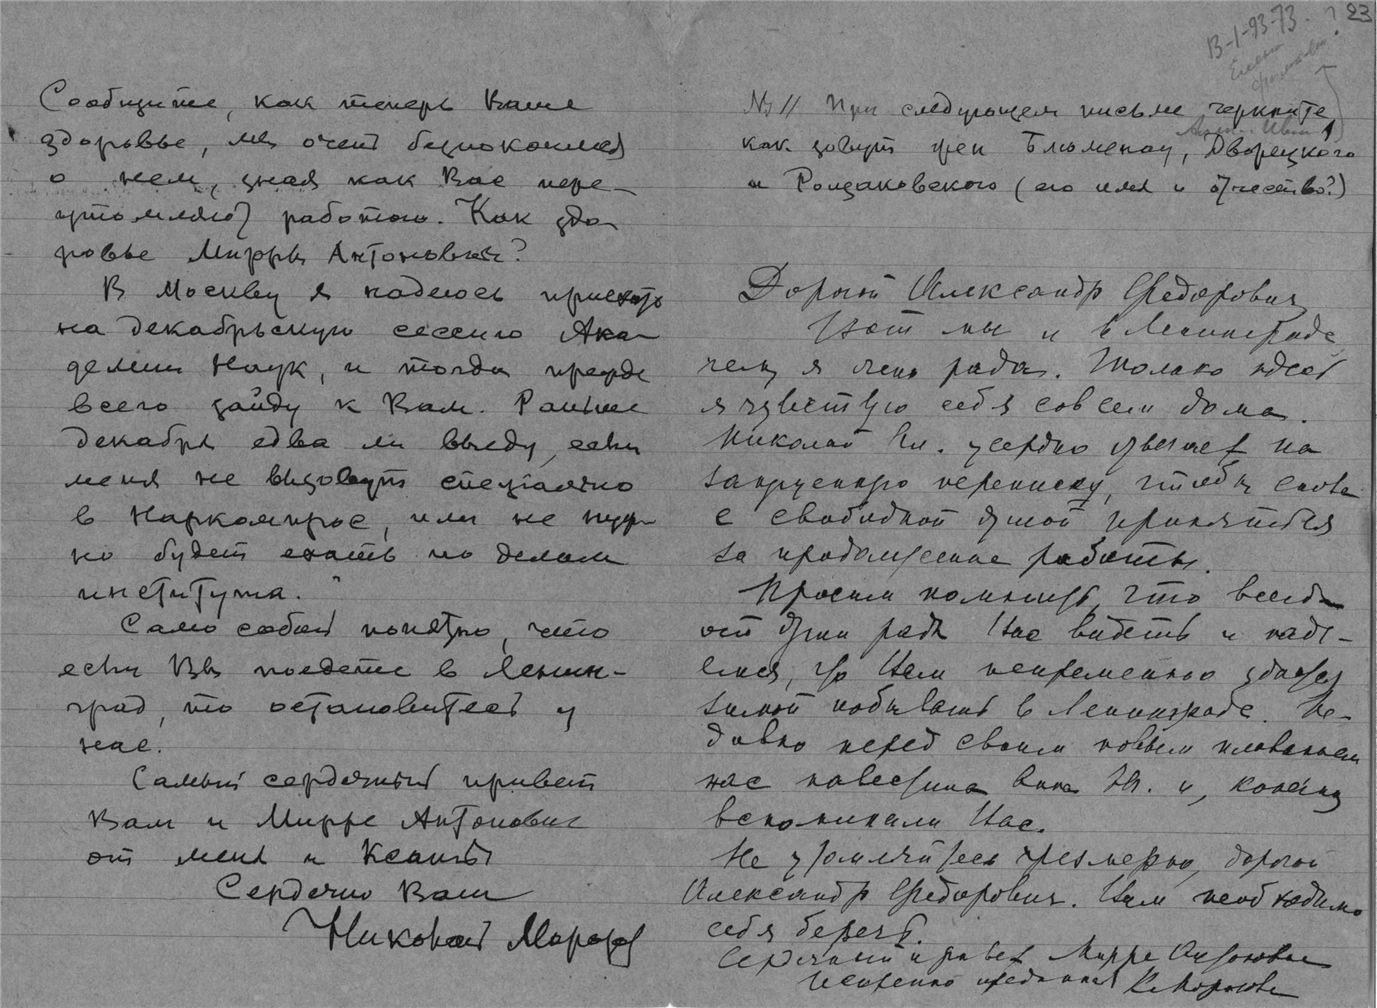 Сообщите, как теперь Ваше
здоровье, мы очень беспокоимся
о нем, зная как Вас пере-
утомляют работою. Как здо-
ровье Мирры Антоновны?
В Москву я надеюсь приехать
на декабрьскую сессию Ака-
демии Наук, и тогда прежде
всего зайду к Вам. Раньше
декабря едва ли выеду, если
меня не вызовут специально
в Наркомпрос, или не нуж-
но будет ехать по делам
института.
Само собой понятно, что
если Вы поедете в Ленин-
град, то остановитесь у
нас.
Самый сердечный привет
Вам и Мирре Антоновне
от меня и Ксаны
Сердечно Ваш
Николай Морозов
23
В-1-93-73.
№ 11 При следующем письме черкните
как зовут жен Блюменау, Дворецкого
и Рондаковского (его имя и отчество?)
Дорогой Александр Федорович
Вот мы и в Ленинграде
чему я очень рада. Только здесь
я чувствую себя совсем дома.
Николай Ал. усердно отвечает на
запущенную переписку, чтобы снова
с свободной душой приняться
за продолжение работы.
Просим помнить, что всегда
от души рады Вас видеть и наде-
емся, что Вам непременно удастся
зимой побывать в Ленинграде. Не-
давно перед своим новым плаванием
нас навестила Анна и, конечно
вспоминали Вас.
Не утомляйтесь чрезмерно, дорогой
Александр Федорович. Вам необходимо
себя беречь.
Сердечный привет Мирре Антоновне
Искренно преданная К. Морозова